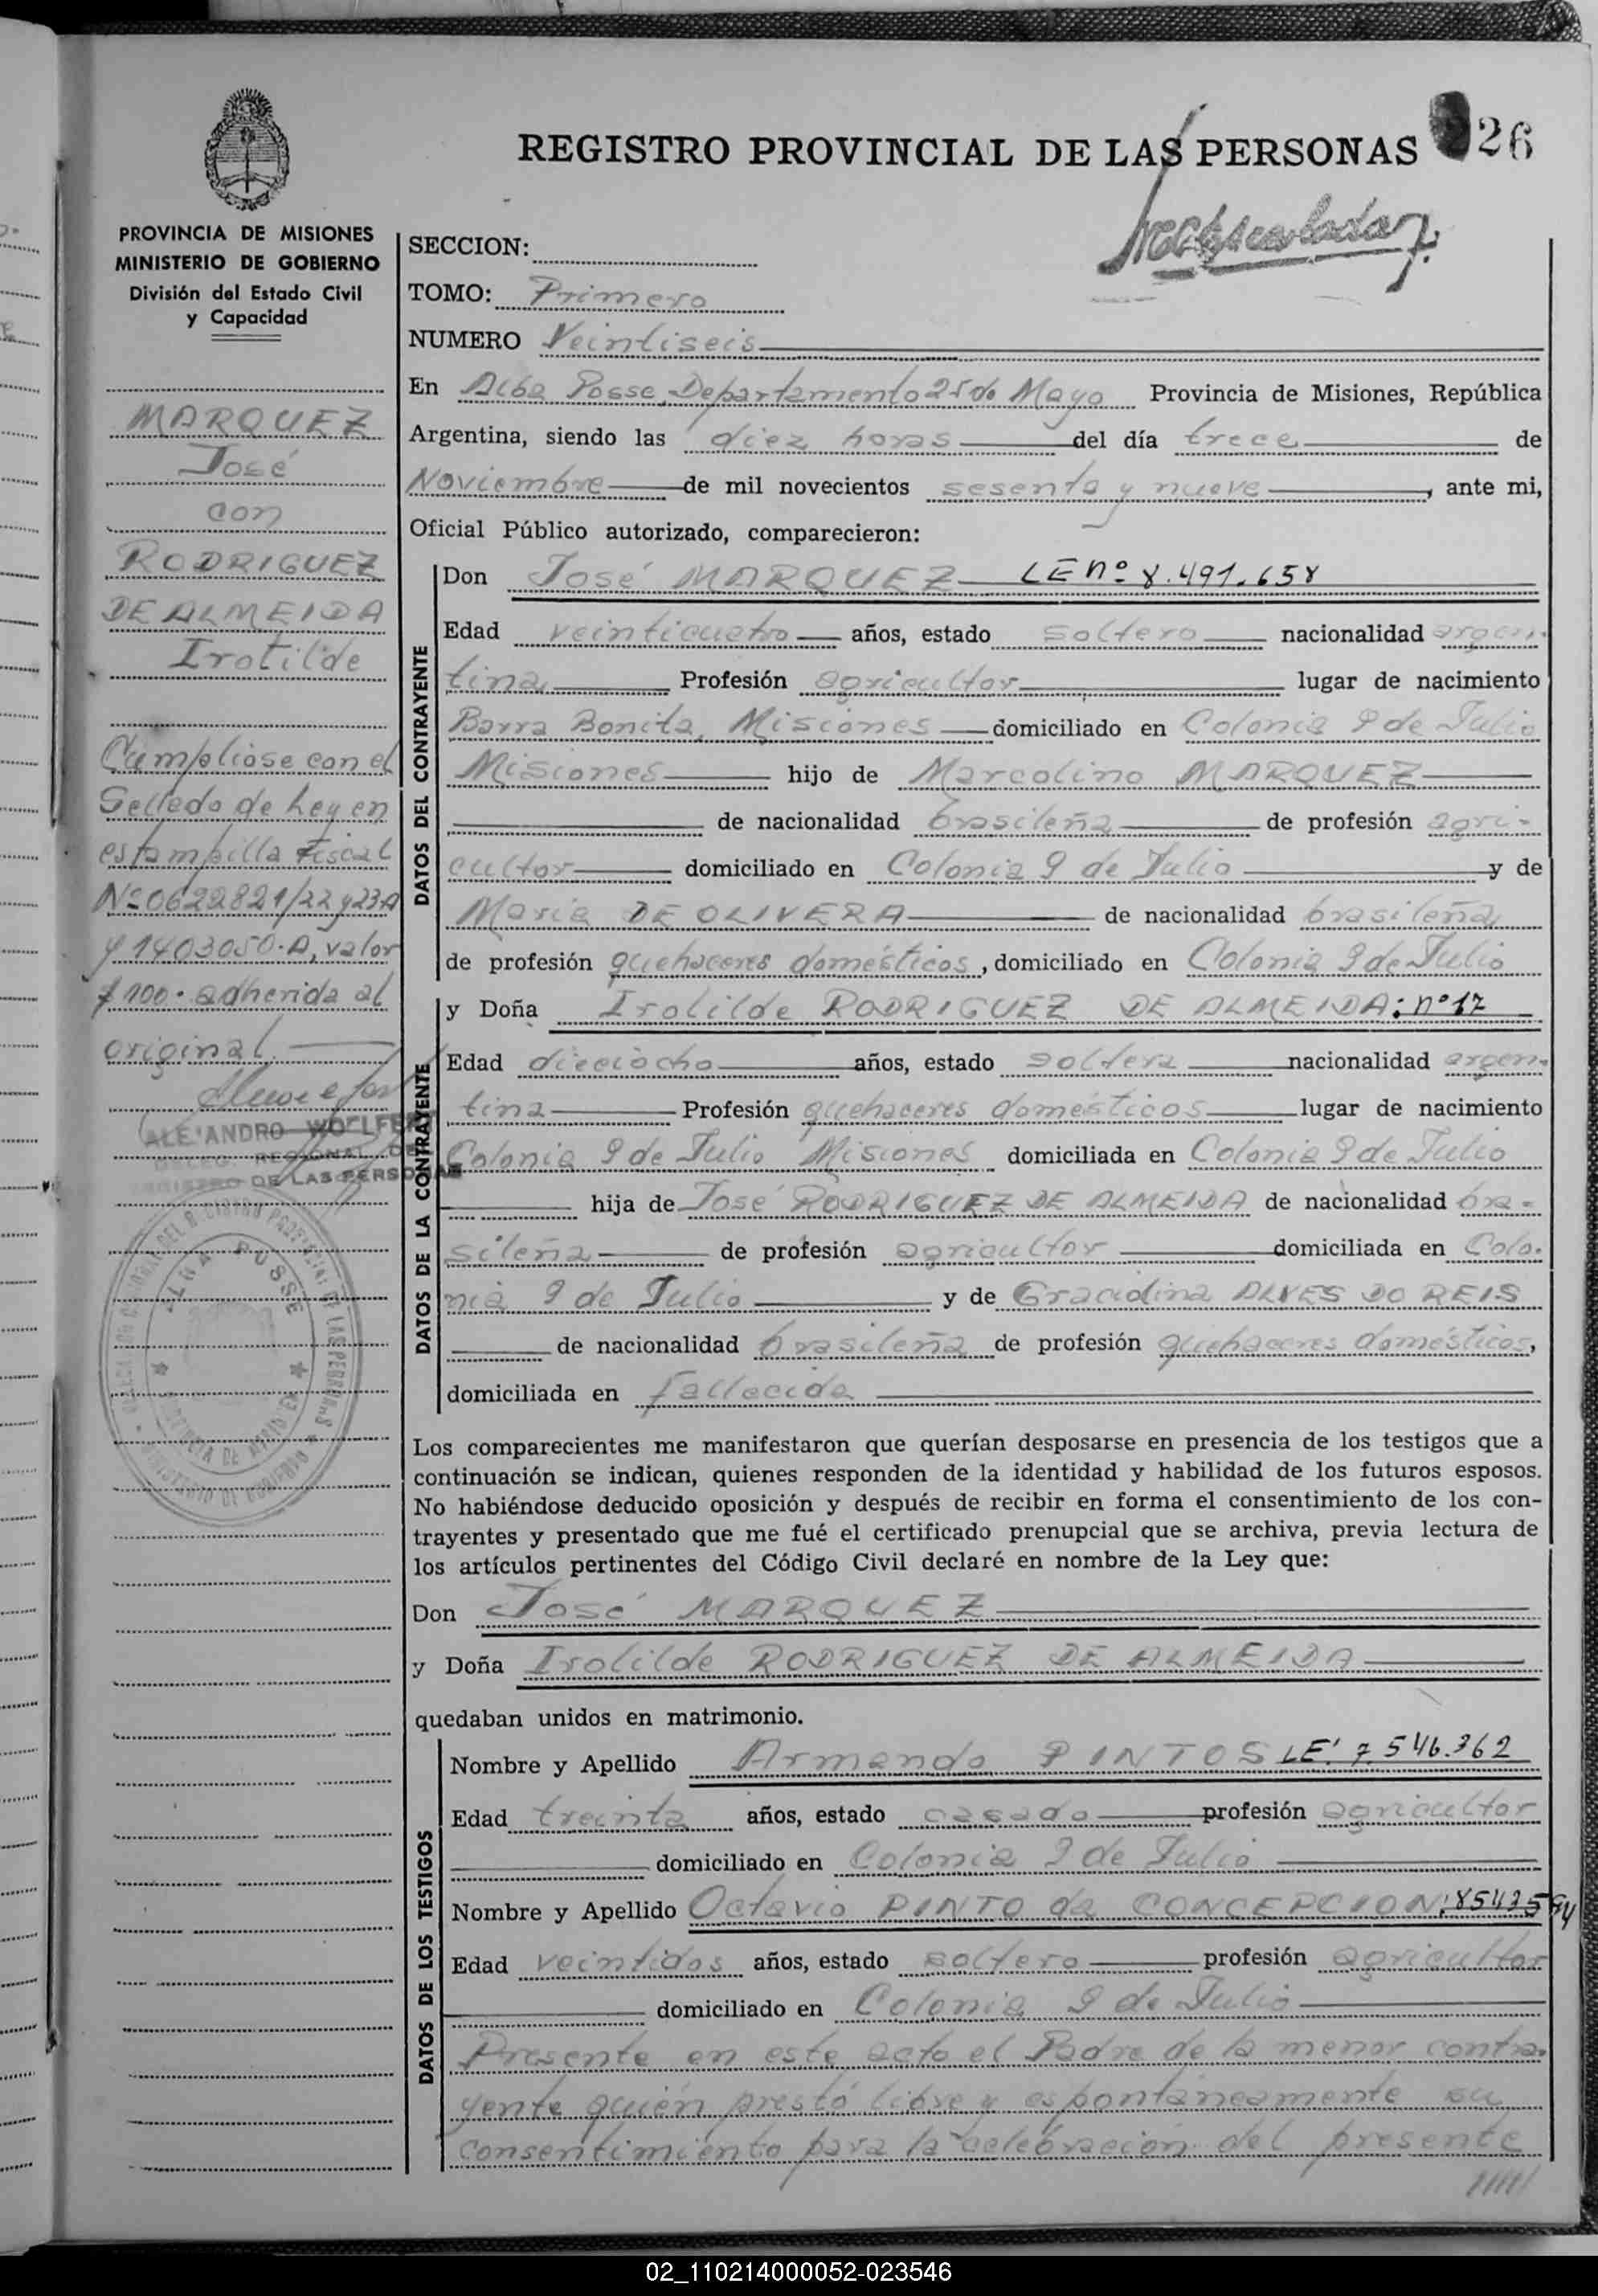 REGISTRO PROVINCIAL DE LAS PERSONAS
26
PROVINCIA DE MISIONES
MINISTERIO DE GOBIERNO
División del Estado Civil
y Capacidad
MARQUEZ
José
con
RODRIGUEZ
DE ALMEIDA
Irotilde
Cumplióse con el
Sellado de Ley en
estampilla Fiscal
Nº 0622821/22 y 23.A
y 1403050.A, valor
$ 100. adherida al
original
DE LAS PERSONAS
SECCION:
TOMO: Primero
NUMERO Veintiseis
En Alba Posse, Departamento 25 de Mayo Provincia de Misiones, República
Argentina, siendo las diez horas del día trece de
Noviembre de mil novecientos sesenta y nueve, ante mi,
Oficial Público autorizado, comparecieron:
DATOS DEL CONTRAYENTE
Don José MARQUEZ LE nº 8.491.658
Edad veinticuatro años, estado soltero nacionalidad argen-
tina Profesión agricultor lugar de nacimiento
Barra Bonita, Misiones domiciliado en Colonia 9 de Julio
Misiones hijo de Marcolino MARQUEZ
de nacionalidad brasileña de profesión agri-
cultor domiciliado en Colonia 9 de Julio y de
Maria DE OLIVERA de nacionalidad brasileña
de profesión quehaceres domésticos, domiciliado en Colonia 9 de Julio
DATOS DE LA CONTRAYENTE
y Doña Irotilde RODRIGUEZ DE ALMEIDA: nº 17
Edad dieciocho años, estado soltera nacionalidad argen-
tina Profesión quehaceres domésticos lugar de nacimiento
Colonia 9 de Julio Misiones domiciliada en Colonia 9 de Julio
hija de José RODRIGUEZ DE ALMEIDA de nacionalidad bra-
sileña de profesión agricultor domiciliada en Colo-
nia 9 de Julio y de Gracidina ALVES DO REIS
de nacionalidad brasileña de profesión quehaceres domésticos,
domiciliada en fallecida
Los comparecientes me manifestaron que querían desposarse en presencia de los testigos que a
continuación se indican, quienes responden de la identidad y habilidad de los futuros esposos.
No habiéndose deducido oposición y después de recibir en forma el consentimiento de los con-
trayentes y presentado que me fué el certificado prenupcial que se archiva, previa lectura de
los artículos pertinentes del Código Civil declaré en nombre de la Ley que:
Don José MARQUEZ
y Doña Irotilde RODRIGUEZ DE ALMEIDA
quedaban unidos en matrimonio.
DATOS DE LOS TESTIGOS
Nombre y Apellido Armando PINTOS LE. 7.546.362
Edad treinta años, estado casado profesión agricultor
domiciliado en Colonia 9 de Julio
Nombre y Apellido Octavio PINTO da CONCEPCION
Edad veintidos años, estado soltero profesión agricultor
domiciliado en Colonia 9 de Julio
Presente en este acto el Padre de la menor contra-
yente quién prestó libre y espontáneamente su
consentimiento para la celebración del presente
02_110214000052-023546